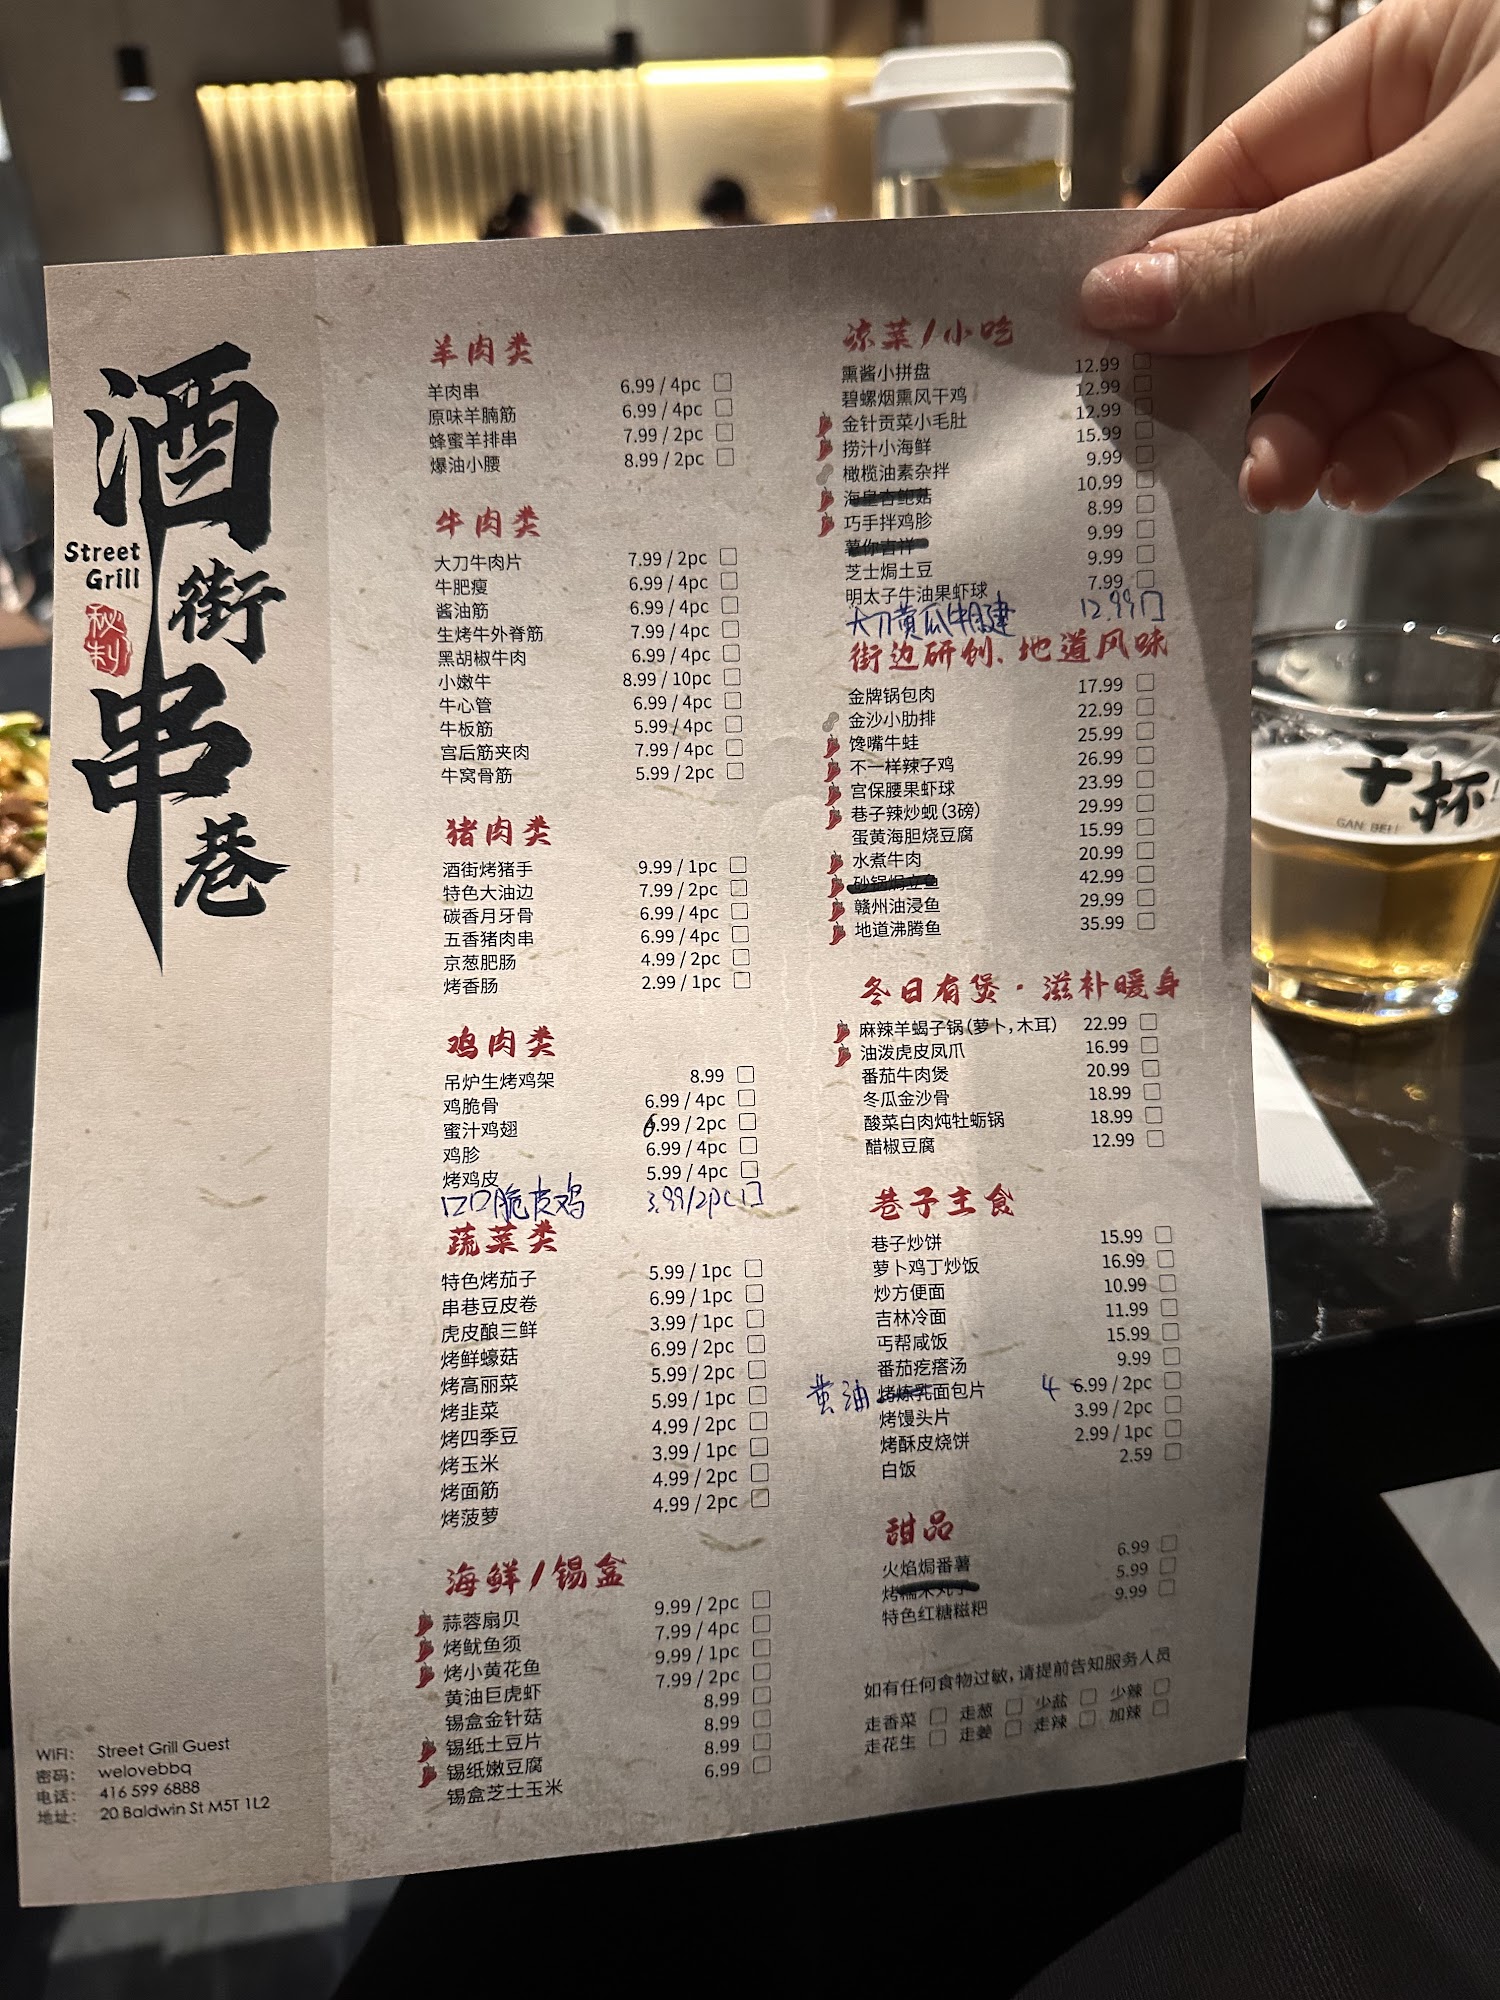 酒街串巷
Street
Grill
秘制
羊肉类
羊肉串 6.99 / 4pc
原味羊腩筋 6.99 / 4pc
蜂蜜羊排串 7.99 / 2pc
爆油小腰 8.99 / 2pc
牛肉类
大刀牛肉片 7.99 / 2pc
牛肥瘦 6.99 / 4pc
酱油筋 6.99 / 4pc
生烤牛外脊筋 7.99 / 4pc
黑胡椒牛肉 6.99 / 4pc
小嫩牛 8.99 / 10pc
牛心管 6.99 / 4pc
牛板筋 5.99 / 4pc
宫后筋夹肉 7.99 / 4pc
牛窝骨筋 5.99 / 2pc
猪肉类
酒街烤猪手 9.99 / 1pc
特色大油边 7.99 / 2pc
碳香月牙骨 6.99 / 4pc
五香猪肉串 6.99 / 4pc
京葱肥肠 4.99 / 2pc
烤香肠 2.99 / 1pc
鸡肉类
吊炉生烤鸡架 8.99
鸡脆骨 6.99 / 4pc
蜜汁鸡翅 6.99 / 2pc
鸡胗 6.99 / 4pc
烤鸡皮 5.99 / 4pc
口口脆皮鸡 3.99/2pc
蔬菜类
特色烤茄子 5.99 / 1pc
串巷豆皮卷 6.99 / 1pc
虎皮酿三鲜 3.99 / 1pc
烤鲜蠔菇 6.99 / 2pc
烤高丽菜 5.99 / 2pc
烤韭菜 5.99 / 1pc
烤四季豆 4.99 / 2pc
烤玉米 3.99 / 1pc
烤面筋 4.99 / 2pc
烤菠萝 4.99 / 2pc
海鲜/锡盒
蒜蓉扇贝 9.99 / 2pc
烤鱿鱼须 7.99 / 4pc
烤小黄花鱼 9.99 / 1pc
黄油巨虎虾 7.99 / 2pc
锡盒金针菇 8.99
锡纸土豆片 8.99
锡纸嫩豆腐 8.99
锡盒芝士玉米 6.99
凉菜/小吃
熏酱小拼盘 12.99
碧螺烟熏风干鸡 12.99
金针贡菜小毛肚 12.99
捞汁小海鲜 15.99
橄榄油素杂拌 9.99
海皇杏鲍菇 10.99
巧手拌鸡胗 8.99
萝你吉祥 9.99
芝士焗土豆 9.99
明太子牛油果虾球 7.99
大刀黄瓜牛腱 12.99
街边研创、地道风味
金牌锅包肉 17.99
金沙小肋排 22.99
馋嘴牛蛙 25.99
不一样辣子鸡 26.99
宫保腰果虾球 23.99
巷子辣炒蚬(3磅) 29.99
蛋黄海胆烧豆腐 15.99
水煮牛肉 20.99
砂锅焗立鱼 42.99
赣州油浸鱼 29.99
地道沸腾鱼 35.99
冬日有煲·滋补暖身
麻辣羊蝎子锅(萝卜,木耳) 22.99
油泼虎皮凤爪 16.99
番茄牛肉煲 20.99
冬瓜金沙骨 18.99
酸菜白肉炖牡蛎锅 18.99
醋椒豆腐 12.99
巷子主食
巷子炒饼 15.99
萝卜鸡丁炒饭 16.99
炒方便面 10.99
吉林冷面 11.99
丐帮咸饭 15.99
番茄疙瘩汤 9.99
黄油 烤炼乳面包片 4 6.99 / 2pc
烤馒头片 3.99 / 2pc
烤酥皮烧饼 2.99 / 1pc
白饭 2.59
甜品
火焰焗番薯 6.99
烤糯米丸子 5.99
特色红糖糍粑 9.99
如有任何食物过敏,请提前告知服务人员
走香菜 走葱 少盐 少辣
走花生 走姜 走辣 加辣
WIFI: Street Grill Guest
密码: welovebbq
电话: 416 599 6888
地址: 20 Baldwin St M5T 1L2
干杯!
GAN BEI!